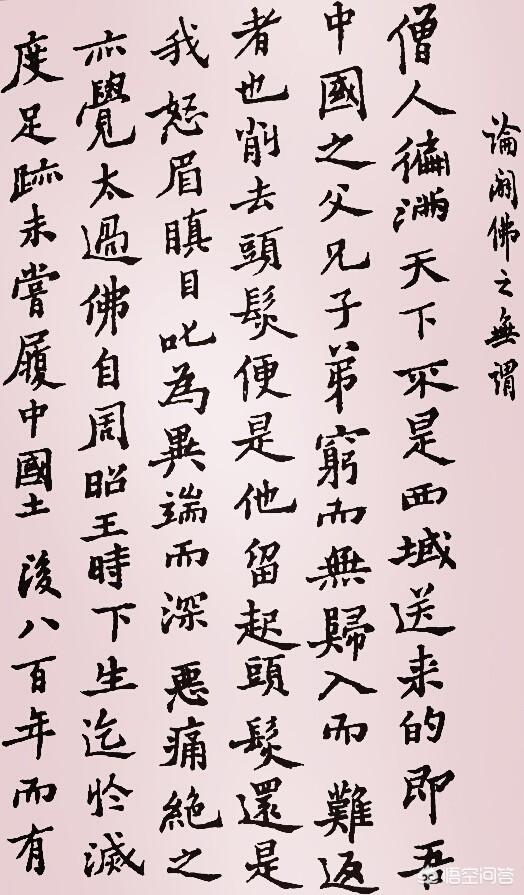 論闢佛之無謂
僧人徧滿天下不是西域送来的即吾
中國之父兄子弟窮而無歸入而難返
者也削去頭髮便是他留起頭髮還是
我怒眉瞋目叱為異端而深惡痛絕之
亦覺太過佛自周昭王時下生迄於滅
度足跡未嘗履中國土後八百年而有
悟空问答